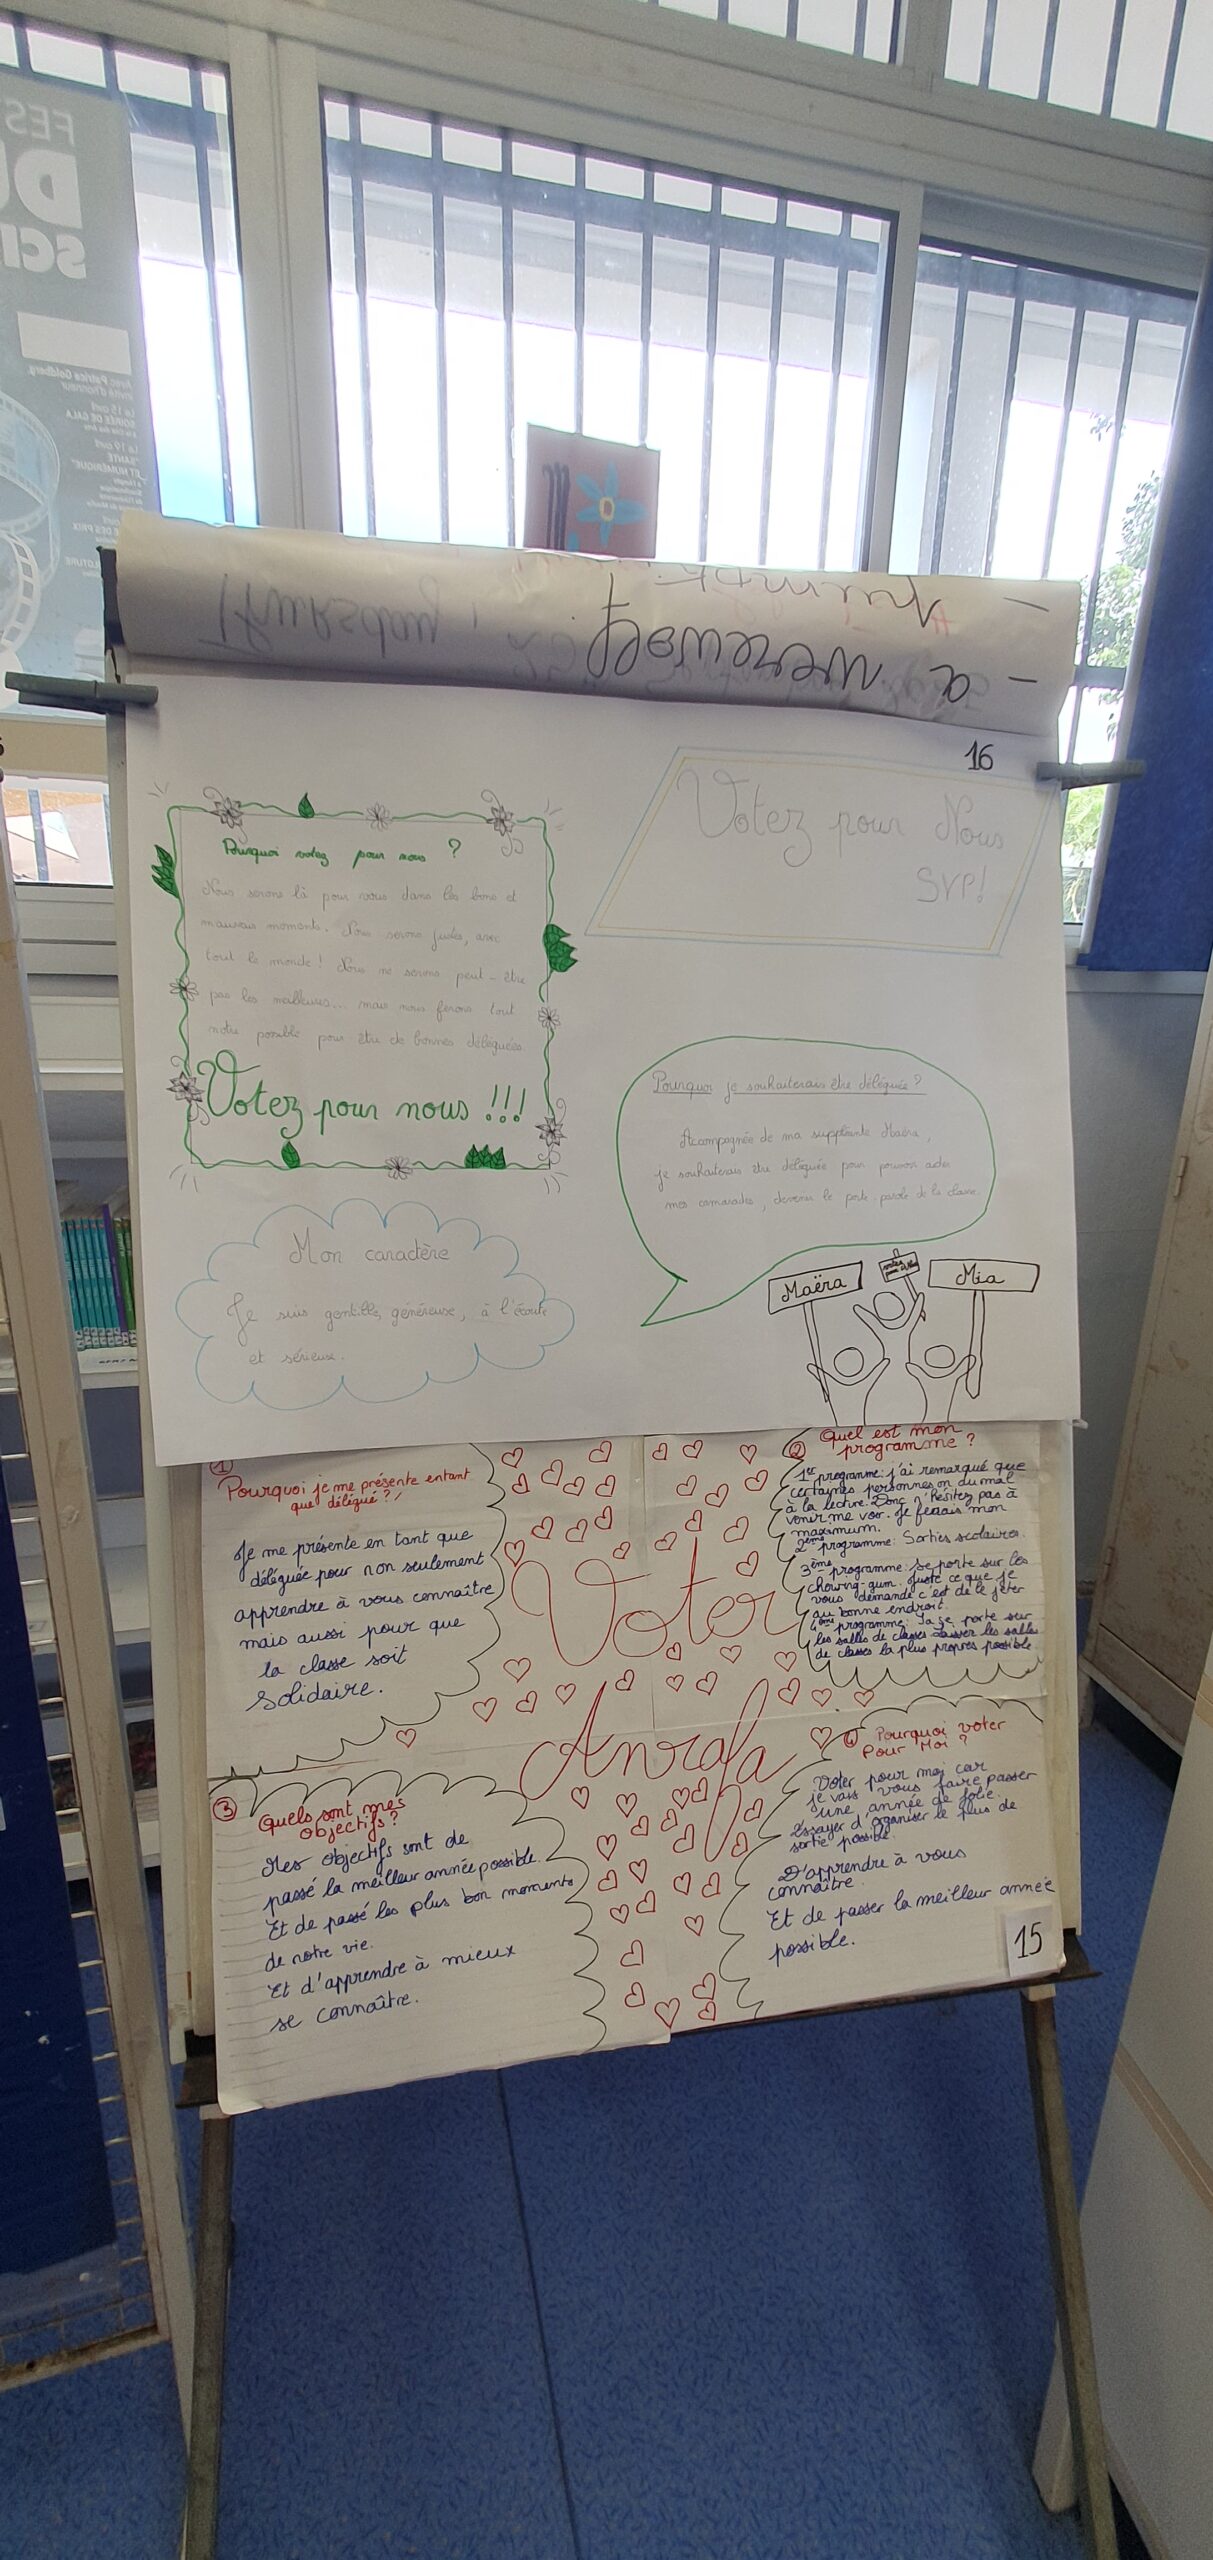 - a werewolf
Thursday,
16
Votez pour Nous
SVP!
Pourquoi votez pour nous ?
Nous serons là pour vous dans les bons et
mauvais moments. Nous serons justes, avec
tout le monde ! Nous ne serons peut-être
pas les meilleures... mais nous ferons tout
notre possible pour être de bonnes déléguées.
Votez pour nous !!!
Pourquoi je souhaiterais être déléguée ?
Acompagnée de ma suppléante Maëra,
je souhaiterais être déléguée pour pouvoir aider
mes camarades, devenir le porte-parole de la classe.
Mon caractère
Je suis gentille, généreuse, à l'écoute
et sérieuse.
Maëra
Mia
1
Pourquoi je me présente entant
que délégué ?
Je me présente en tant que
déléguée pour non seulement
apprendre à vous connaître
mais aussi pour que
la classe soit
Solidaire.
2 Quel est mon
programme ?
1er programme : j'ai remarqué que
certaines personnes on du mal
à la lecture. Donc n'hésitez pas à
venir me voir. Je ferais mon
maximum.
2ème programme : Sorties scolaires.
3ème programme : se porte sur les
chewing-gum. Juste ce que je
vous demande c'est de le jeter
au bonne endroit.
4ème programme : Sa se porte sur
les salles de classes laisser les salles
de classes la plus propres possible.
Voter
3 Quels sont mes
objectifs ?
Mes objectifs sont de
passé la meilleur année possible.
Et de passé les plus bon moments
de notre vie.
Et d'apprendre à mieux
se connaître.
4 Pourquoi voter
Pour Moi ?
Voter pour moi car
je vais vous faire passer
une année de folie.
Essayer d'organiser le plus de
sortie possible.
D'apprendre à vous
connaître.
Et de passer la meilleur année
possible.
15
FES
DU
SCI
Avec Patrice Goldberg,
invité d'honneur
SOIRÉE DE GALA
ET NUMÉRIQUE"